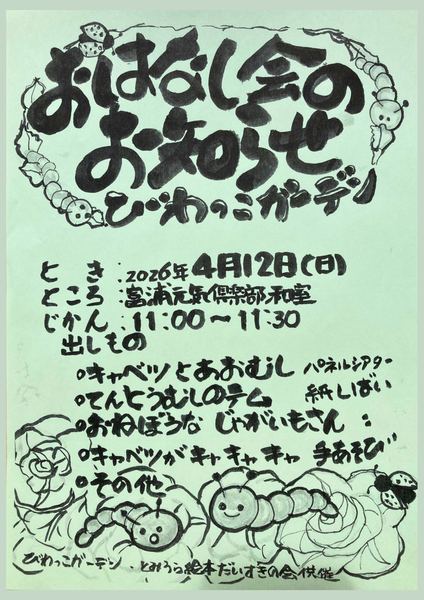 おはなし会の
お知らせ
びわっこガーデン
とき:2026年4月12日(日)
ところ:富浦元気倶楽部和室
じかん:11:00〜11:30
出しもの
○キャベツとあおむし パネルシアター
○てんとうむしのテム 紙しばい
○おねぼうなじゃがいもさん :
○キャベツがキャキャキャ 手あそび
○その他
びわっこガーデン・とみうら絵本だいすきの会共催